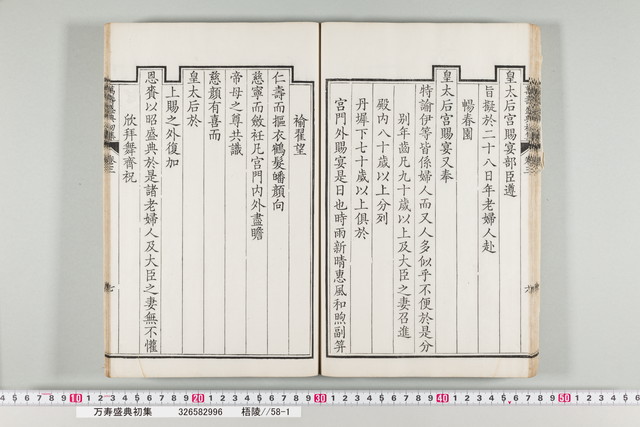 皇太后宮賜宴部臣遵
旨擬於二十八日年老婦人赴
暢春園
皇太后宮賜宴又奉
特諭伊等皆係婦人而又人多似乎不便於是分
別年齒凡九十歲以上及大臣之妻召進
殿內八十歲以上分列
丹墀下七十歲以上俱於
宮門外賜宴是日也時雨新晴惠風和煦副笄
褕翟望
仁壽而摳衣鶴髮皤顏向
慈寧而斂衽凡宮門內外盡瞻
帝母之尊共識
慈顏有喜而
皇太后於
上賜之外復加
恩賚以昭盛典於是諸老婦人及大臣之妻無不懽
欣拜舞齊祝
卷三
七
10 20 30 40 50
万寿盛典初集 326582996 梧陵//58-1